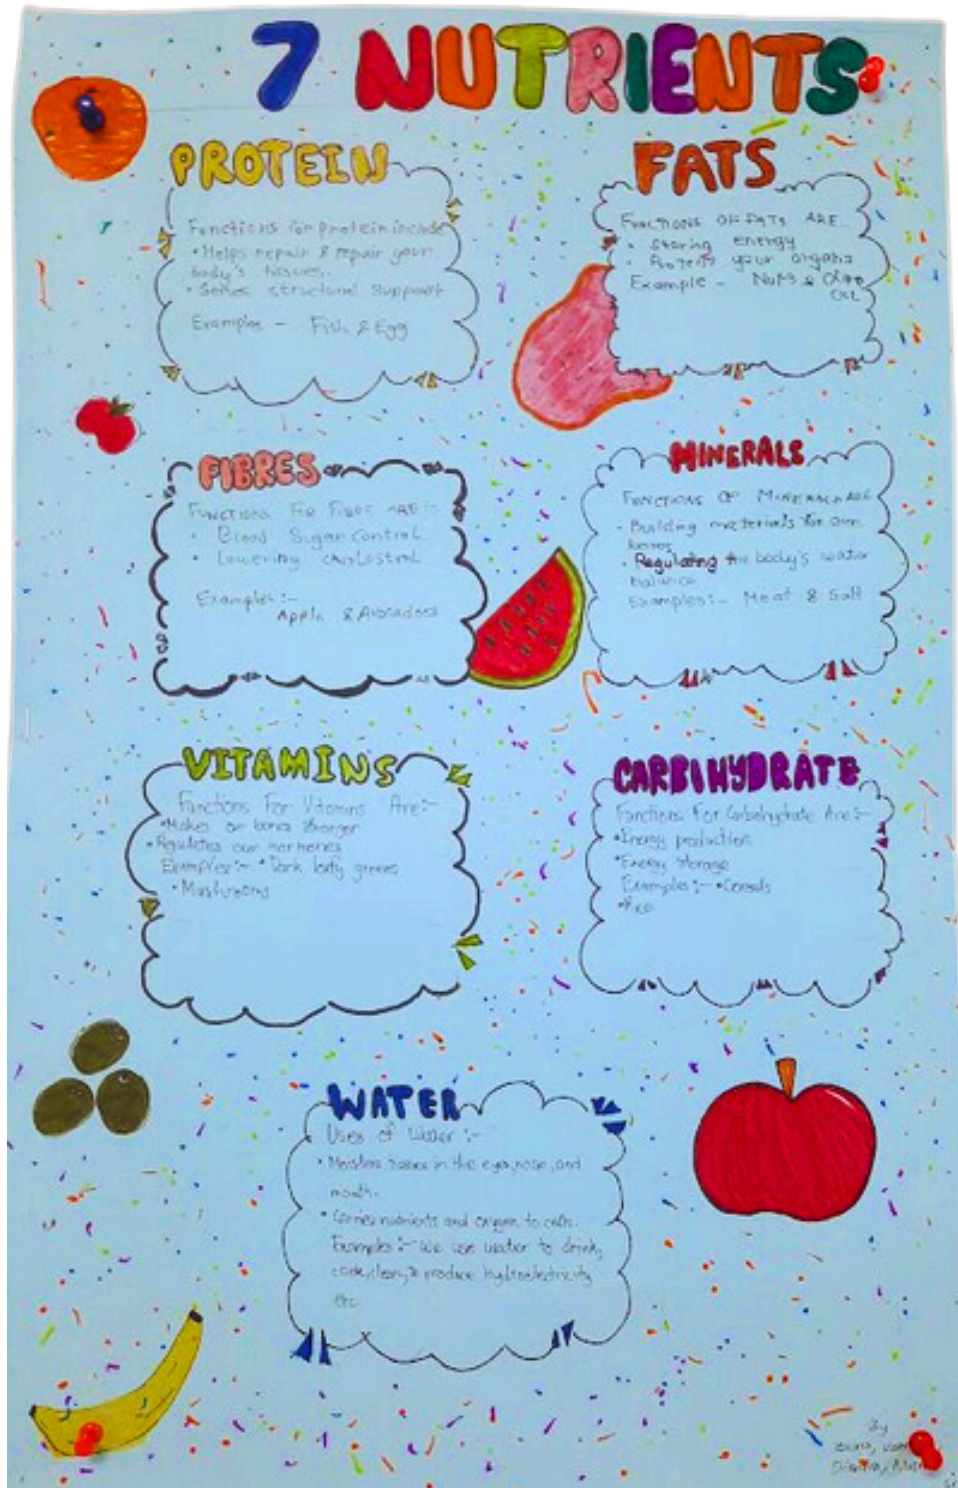 7 NUTRIENTS
PROTEIN
Functions for protein include
• Helps repair & repair your
body's tissues.
• Gives structural support
Examples - Fish & Egg
FATS
FUNCTIONS OF FATS ARE
• Storing energy
• Protects your organs
Example - Nuts & Olive
OIL
FIBRES
FUNCTIONS FOR FIBRE ARE :-
• Blood Sugar Control
• Lowering
Examples :-
Apple & Avocados
MINERALS
FUNCTIONS OF MINERALS ARE
• Building materials for our
bones
• Regulating the body's water
balance
Examples :- Meat & Salt
VITAMINS
Functions For Vitamins Are:-
• Makes our bones stronger
• Regulates our hormones
Examples :- • Dark leafy greens
• Mushrooms
CARBIHYDRATE
Functions For Carbohydrate Are:-
• Energy production
• Energy storage
Examples :- • Cereals
• Rice
WATER
Uses of Water :-
• Moistens tissues in the eyes, nose, and
mouth.
• Carries nutrients and oxygen to cells.
Examples :- We use water to drink,
clean, to produce hydroelectricity
etc.
By